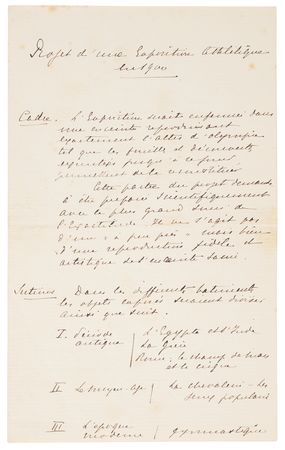 Projet d'une Exposition Athlétique
en 1900
Cadre. L'Exposition serait enfermée dans
une enceinte reproduisant
exactement l'altis d'Olympie
tel que les fouilles et découvertes
exécutées jusqu'à ce jour
permettent de la
Cette partie du projet demande
à être préparée scientifiquement
avec le plus grand souci de
l'Exactitude. Il ne s'agit pas
d'un « à peu près » mais bien
d'une reproduction fidèle et
artistique de l'enceinte sacrée.
Dans les différents bâtiments
les objets exposés seraient divisés
ainsi que suit.
I. Période
antique
L'Egypte et l'Inde
La Grèce
Rome; le champ de mars
et le cirque
II Le moyen-âge
La chevalerie - Les
jeux populaires
III L'époque
moderne
gymnastique